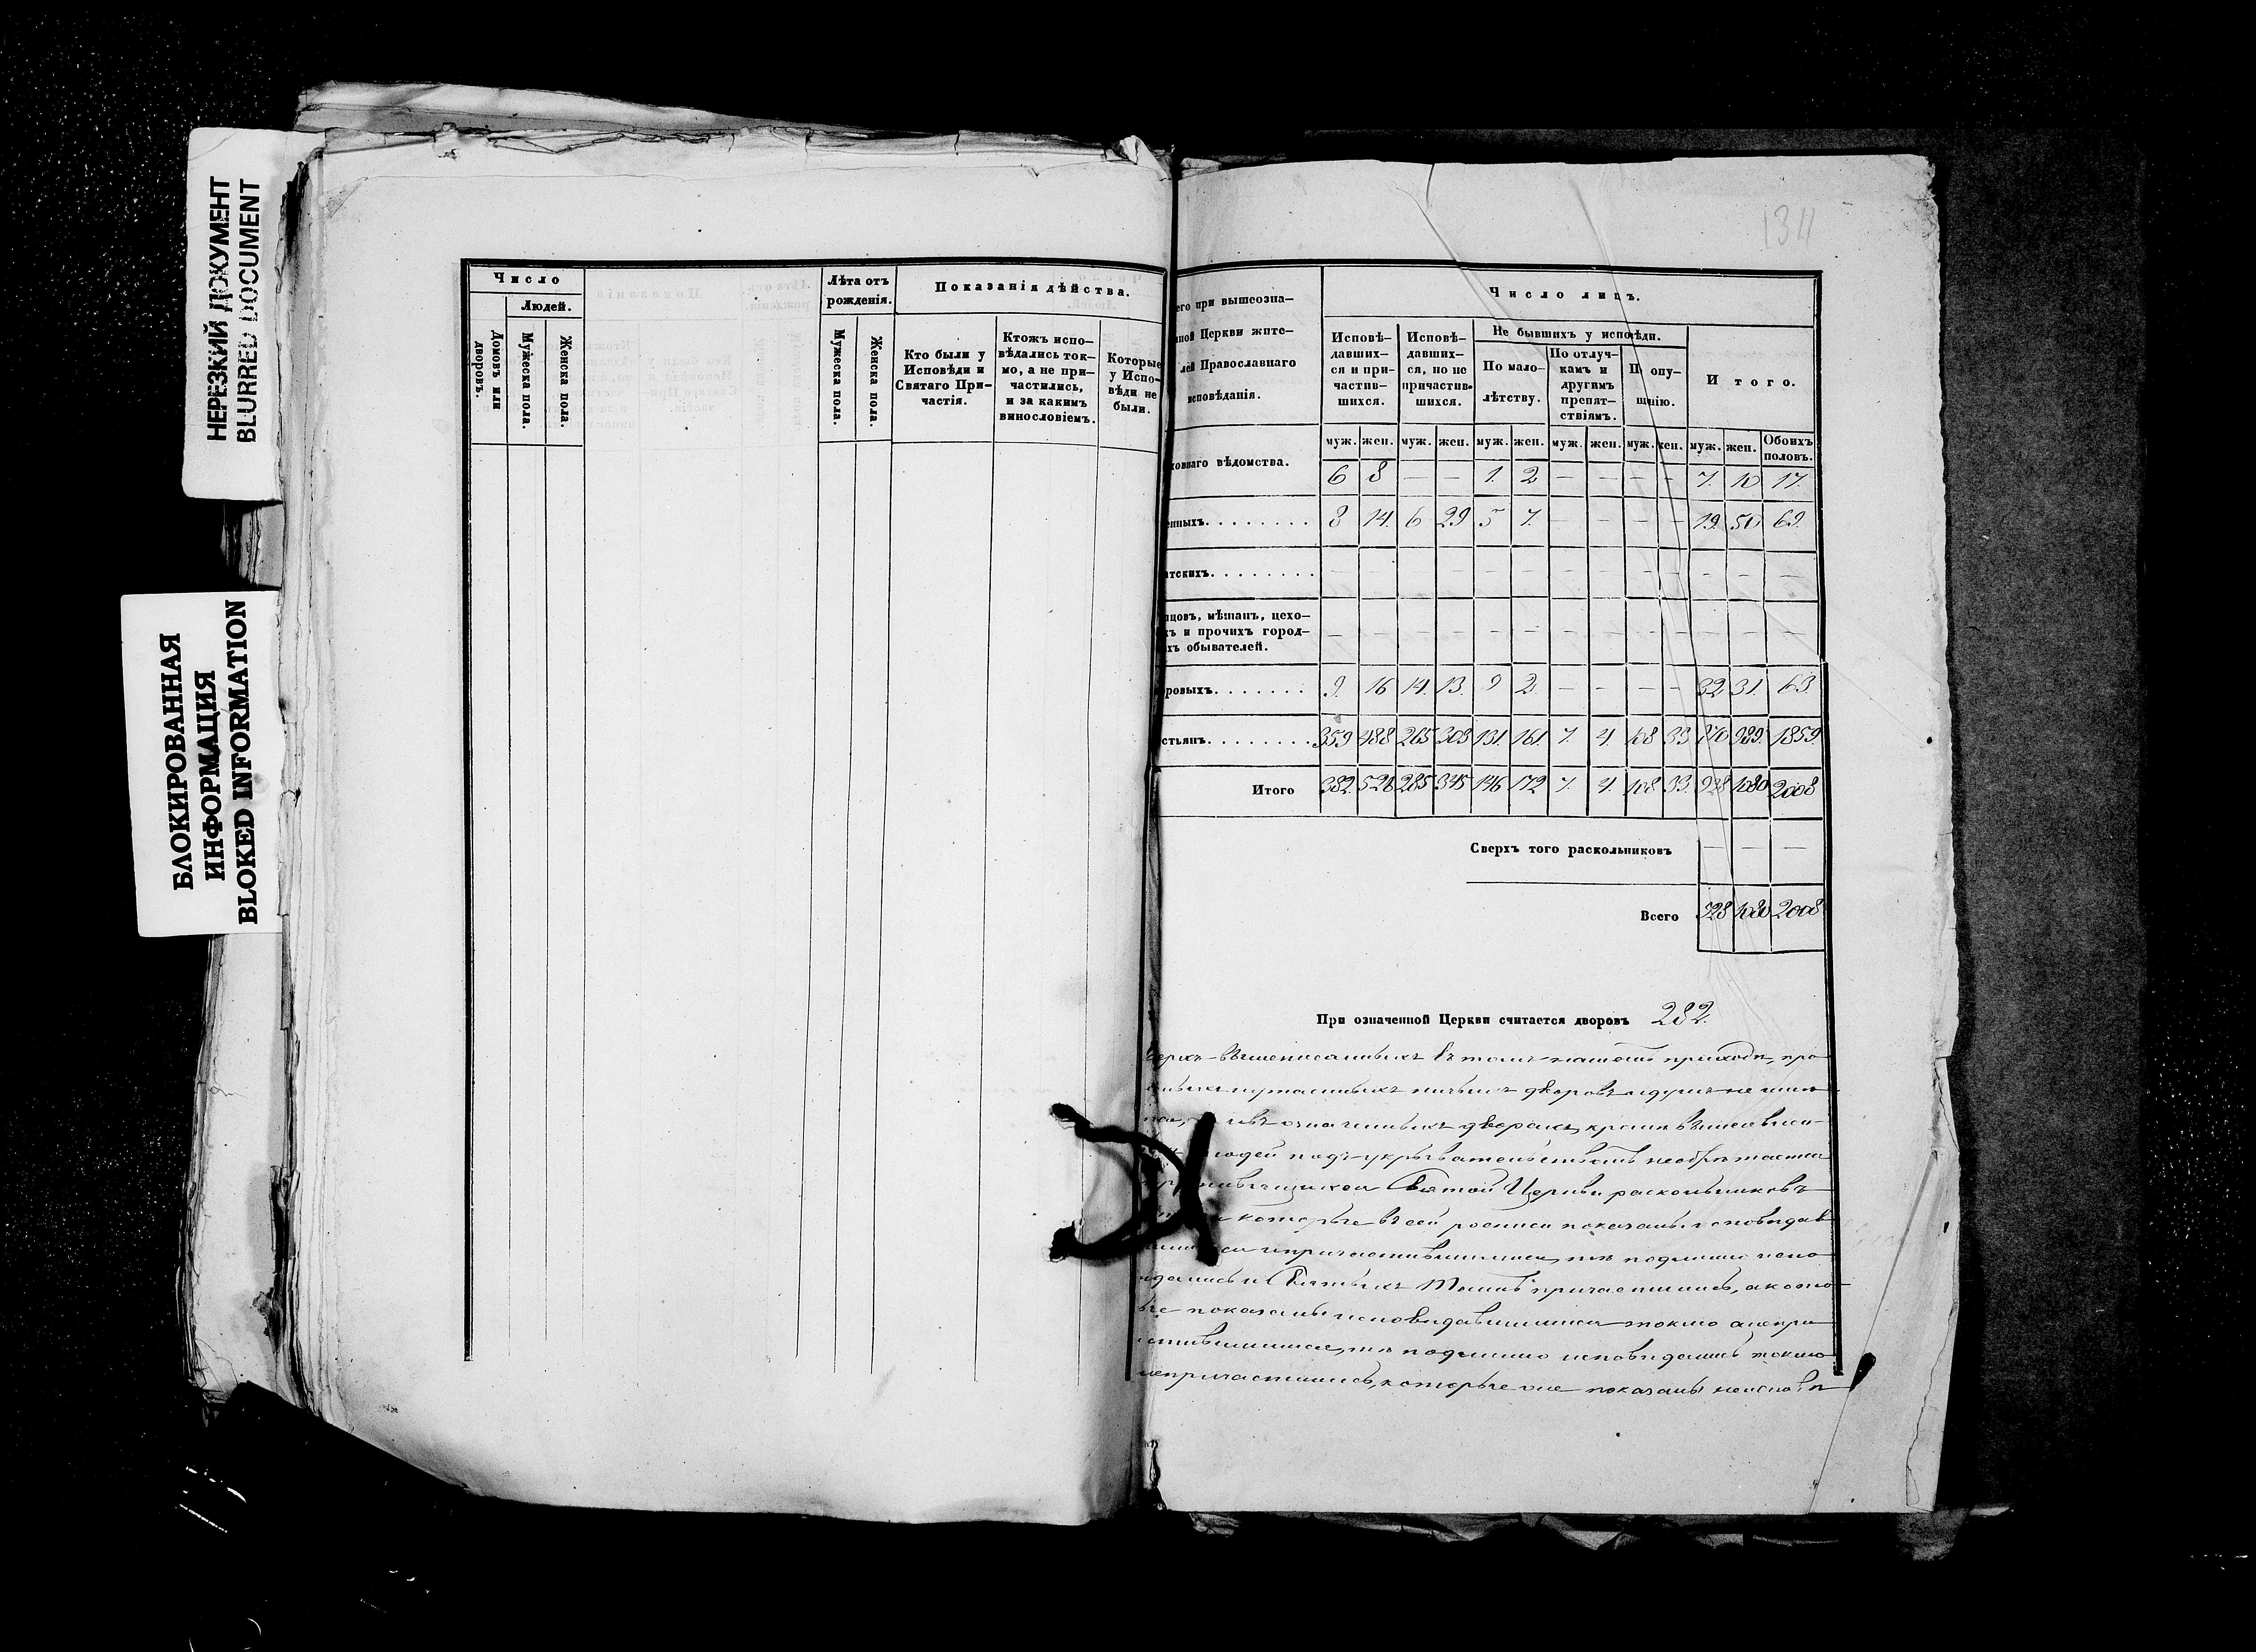 НЕРЕЗКИЙ ДОКУМЕНТ
BLURRED DOCUMENT
БЛОКИРОВАННАЯ
ИНФОРМАЦИЯ
BLOKED INFORMATION
Число
Людей.
Домовъ или дворовъ.
Мужеска пола.
Женска пола.
Лѣта отъ
рожденія.
Мужеска пола.
Женска пола.
Показанія дѣйства.
Кто были у
Исповѣди и
Святаго При-
частія.
Ктожъ испо-
вѣдались ток-
мо, а не при-
частились,
и за какимъ
винословіемъ.
Которые
у Испо-
вѣди не
были.
его при вышеозна-
ной Церкви жите-
лей Православнаго
исповѣданія.
Число лицъ.
Исповѣ-
давших-
ся и при-
частив-
шихся.
Исповѣ-
давших-
ся, но не
причастив-
шихся.
Не бывшихъ у исповѣди.
По мало-
лѣтству.
По отлуч-
камъ и
другимъ
препят-
ствіямъ.
П опу-
щнію.
Итого.
муж. жен. муж. жен. муж. жен. муж. жен. муж. жен. муж. жен. Обоихъ половъ.
ховнаго вѣдомства. 6 8 — — 1. 2 — — — — 7. 10 17.
енныхъ. 8 14. 6 29 5 7. — — — — 19. 50 69.
атскихъ. — — — — — — — — — — — — —
пцовъ, мѣщанъ, цехо-
хъ и прочихъ город-
хъ обывателей. — — — — — — — — — — — — —
ровыхъ. 9. 16 14. 13. 9 2 — — — — 32 31. 63.
стьянъ. 359. 488 265 303 131. 161. 7. 4. 108 33 870 989. 1859.
Итого 382. 526 285 345 146 172 7. 4. 108 33. 928 1080 2008
Сверхъ того раскольниковъ — — —
Всего 928 1080 2008
При означенной Церкви считается дворовъ 282.
верхъ вышеписанныхъ въ томъ нашемъ приходѣ, про
дворовъ и душъ не
означенныхъ дворахъ, кромѣ
людей подъ укрывательствомъ необрѣтается
Святой Церкви раскольниковъ
которые въ сей росписи показаны исповѣдав
и причастившимися, тѣ подлинно испо
вдались и Святыхъ Таинъ причастились, а кото
ые показаны исповѣдавшимися токмо а непри
астившимися, тѣ подлинно исповѣдались токмо
непричастились, которые же показаны неисповѣ